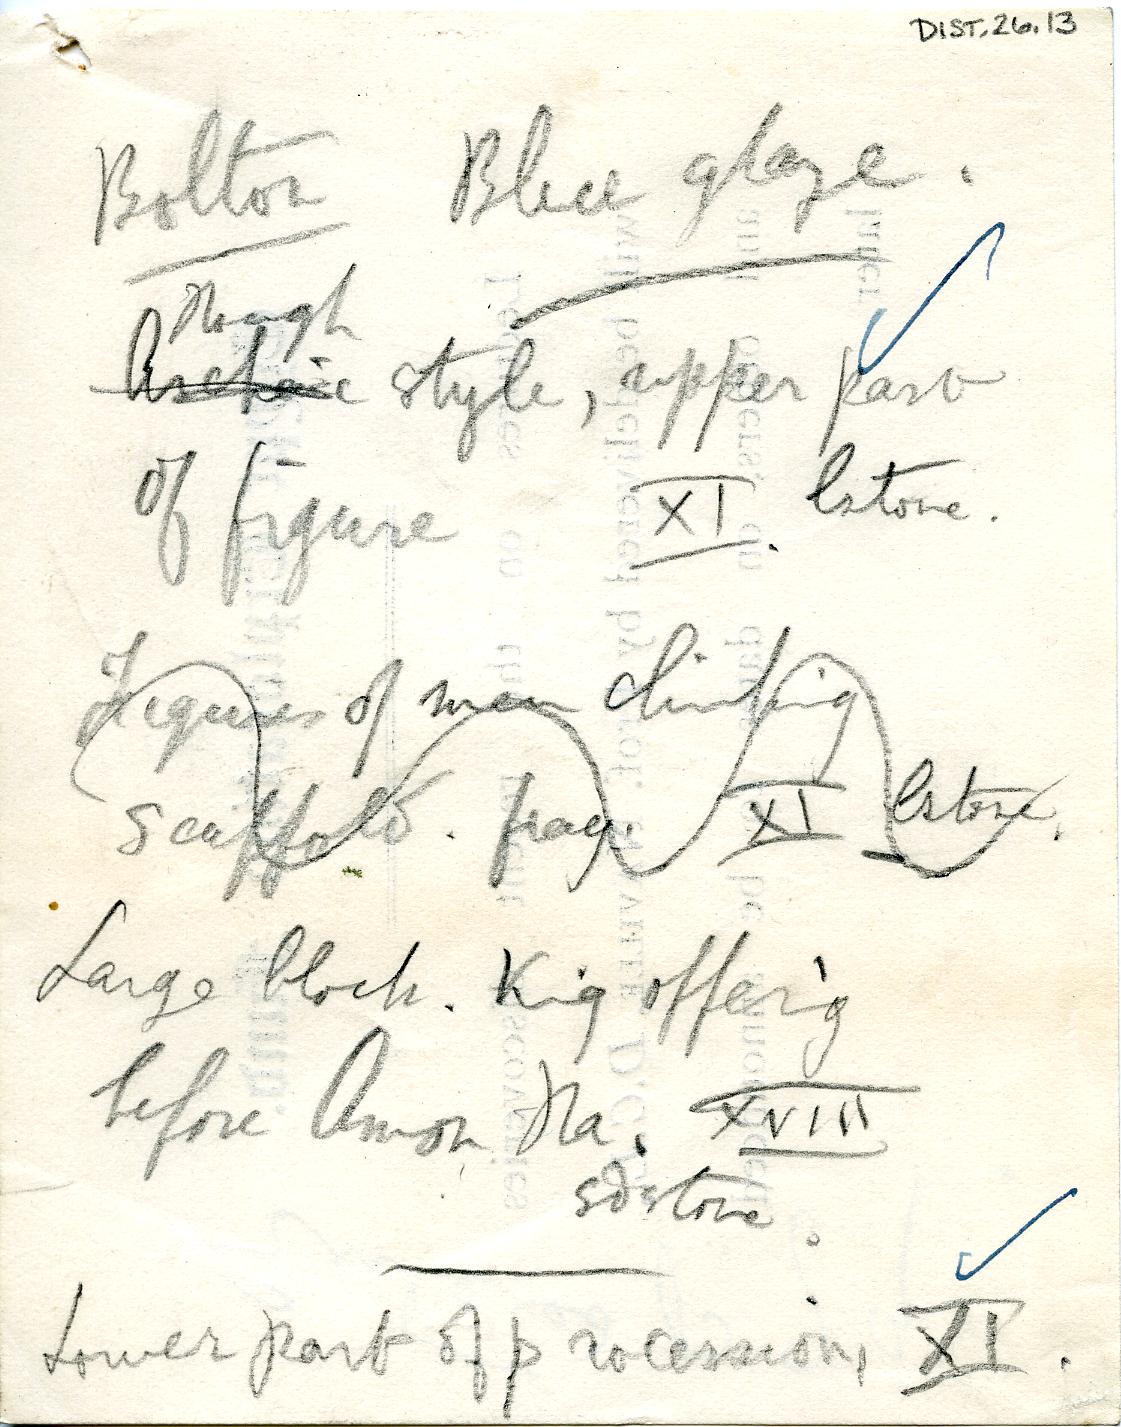 DIST.26.13
Bolton Blue glaze.
Rough
Archaic style, upper part
of figure XI. lstone.
Figures of men climbing
scaffold. frag. XI lstone.
Large block. King offering
before Amon Ra. XVIII
sdstone.
Lower part of procession, XI.